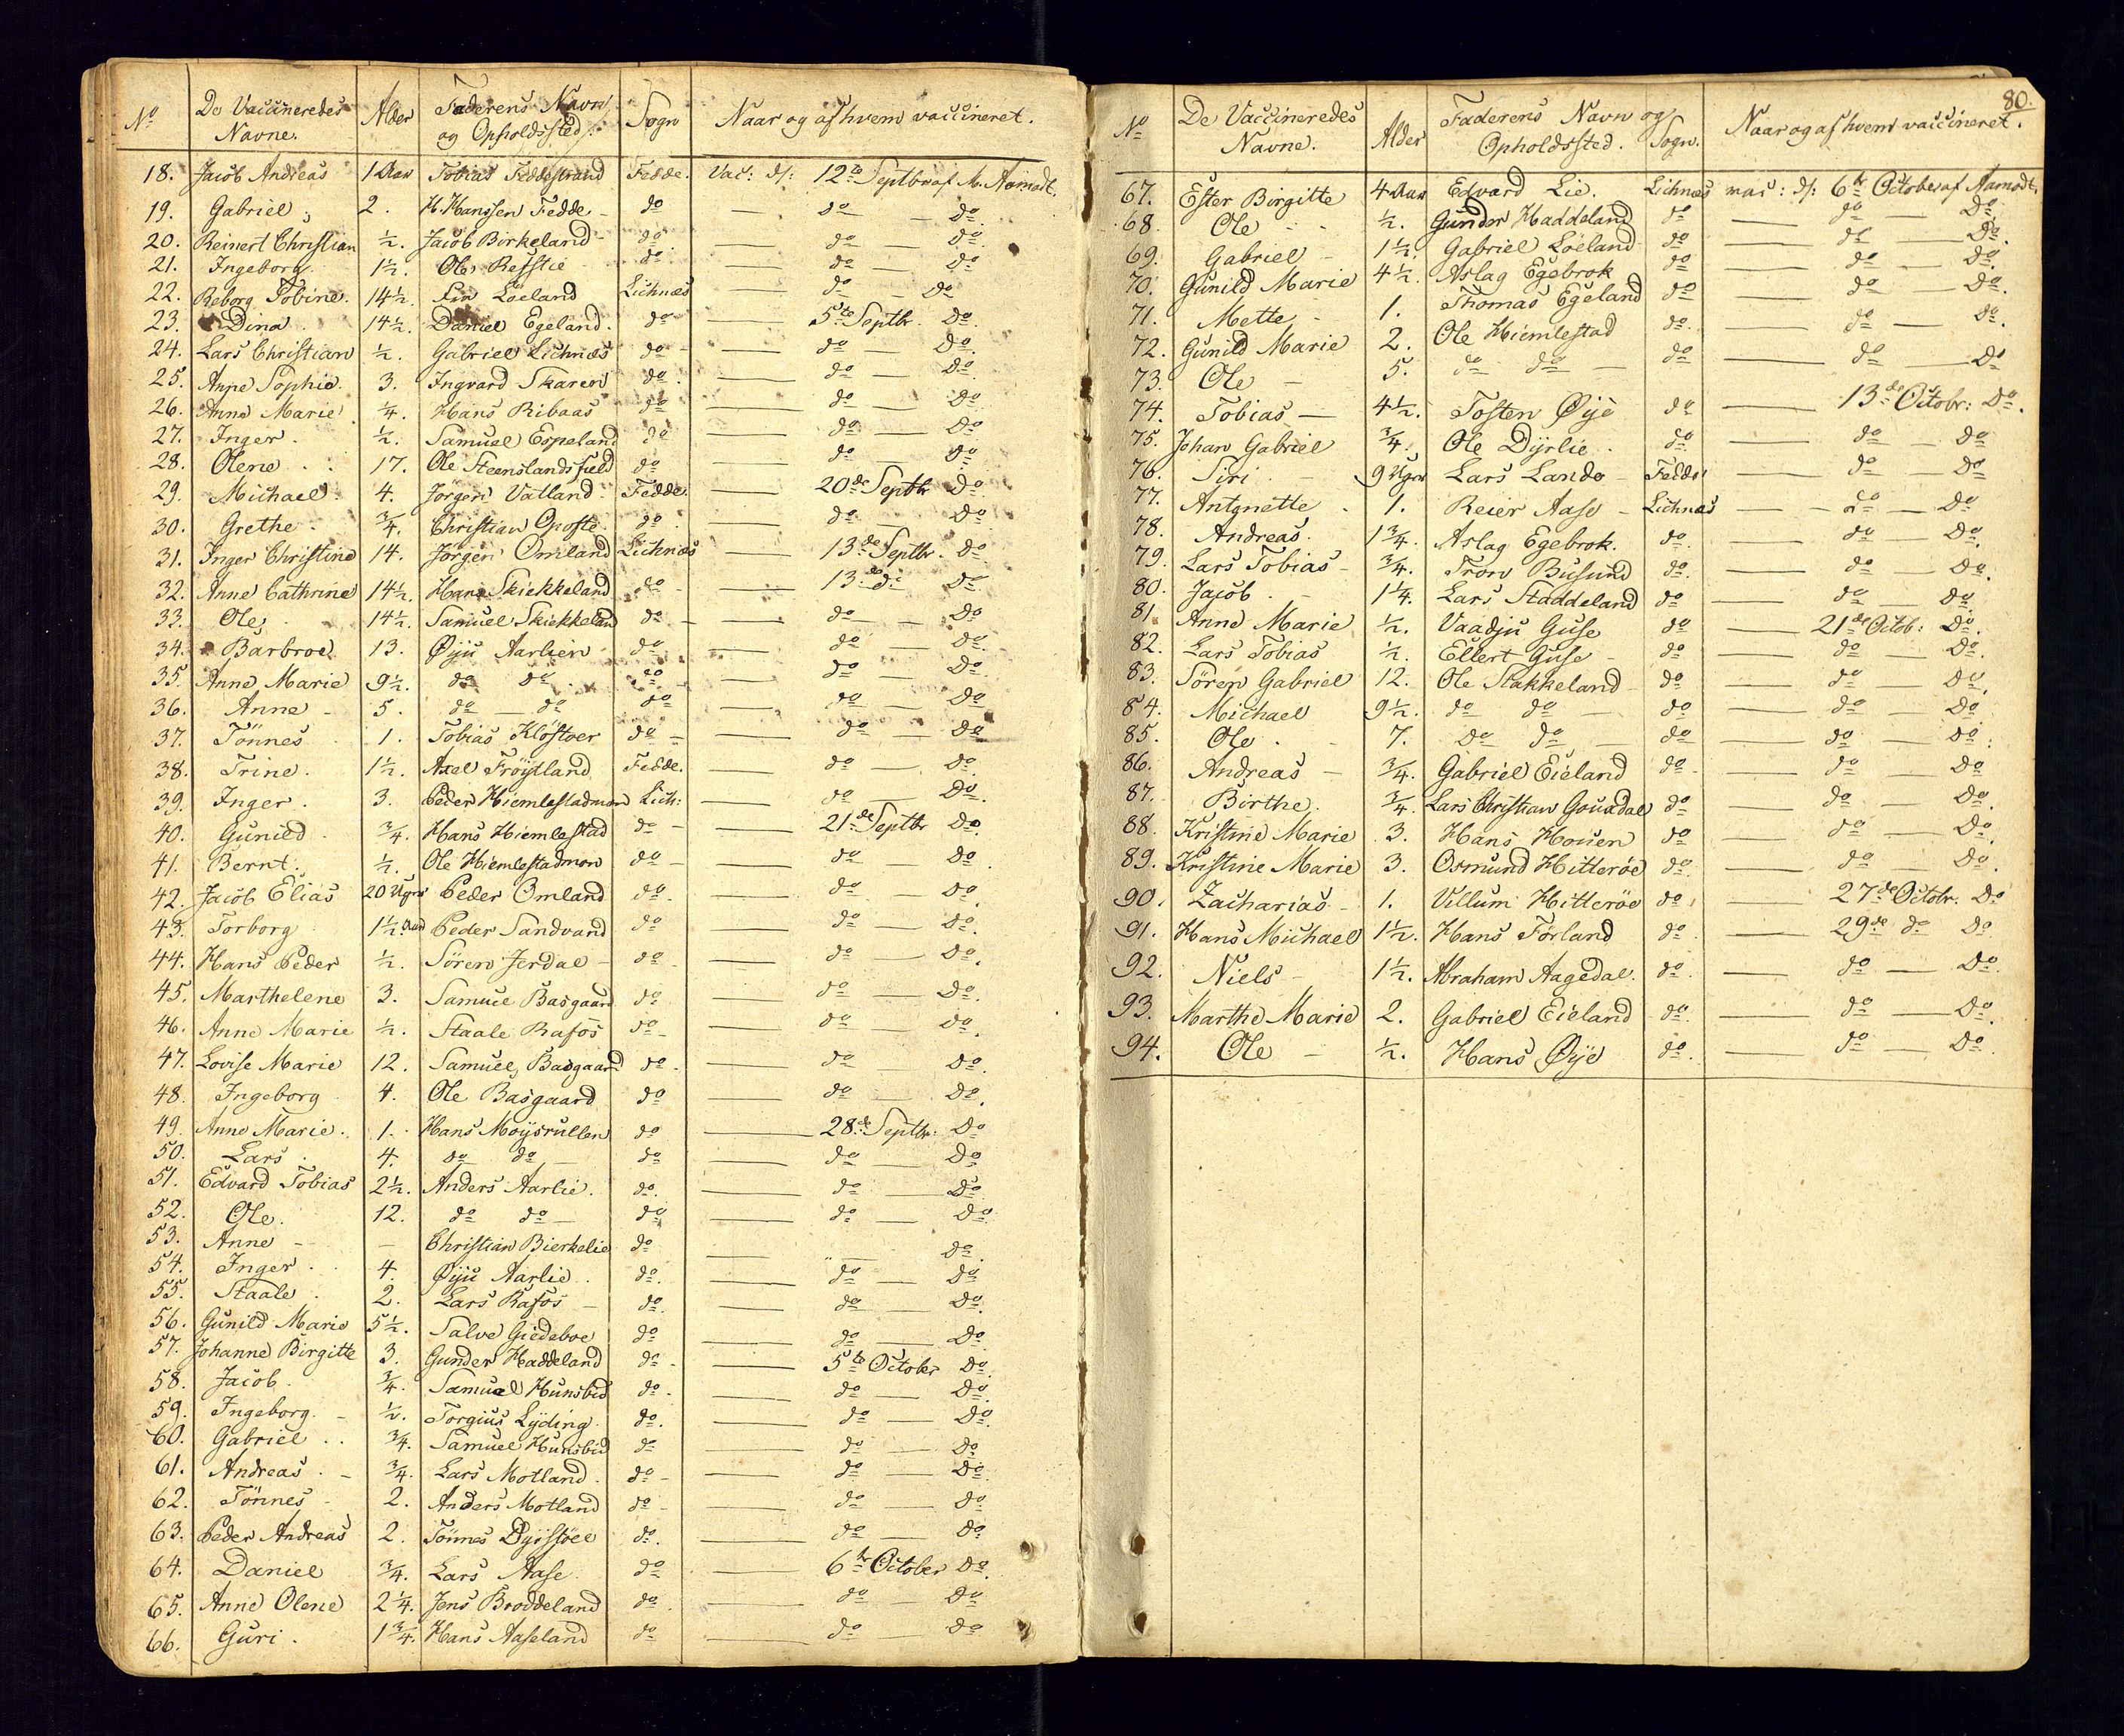 No De Vaccineredes Navne. Alder Faderens Navn og Opholdssted. Sogn Naar og af hvem vaccineret.
18. Jacob Andreas 1 Aar Tobias Feddestrand Fedde. Vac: d: 12te Septbr af M. Aamodt.
19. Gabriel 2. H. Hanssen Fedde do — do — Do
20. Reinert Christian ½. Jacob Birkeland do — do — Do
21. Ingeborg 1½. Ole Refstie do — do — Do
22. Reborg Tobine. 14½. Fin Löeland Lichnæs — do — Do
23. Dina. 14½. Daniel Egeland. do — 5te Septbr. Do
24. Lars Christian ½. Gabriel Lichnæs do — do — Do
25. Anne Sophie. 3. Ingvard Skaren do — do — Do
26. Anne Marie ¼. Hans Ribaas do — do — Do
27. Inger. ½. Samuel Espeland do — do — Do
28. Olene 17. Ole Steenslandsfield do — do — Do
29. Michael 4. Jörgen Vatland Fedde. — 20de Septbr Do
30. Grethe ¾. Christian Opofte do — do — Do
31. Inger Christine 14. Jörgen Omland Lichnæs — 13de Septbr. Do
32. Anne Cathrine 14½. Hans Skiekkeland do — 13de do Do
33. Ole 14½. Samuel Skiekkeland do — do — Do
34. Barbroe 13. Øÿu Aarlien do — do — Do
35. Anne Marie 9½. do do do — do — Do
36. Anne 5. do — do do — do — Do
37. Tönnes 1. Tobias Klöstver do — do — Do
38. Trine. 1½. Axel Fröÿsland Fedde. — do — Do
39. Inger. 3. Peder Hiemlestadmon Lich: — do — Do
40. Gunild ¾. Hans Hiemlestad do — 21de Septbr Do
41. Bernt. ½. Ole Hiemlestadmon do — do — Do
42. Jacob Elias 20 Uger Peder Omland do — do — Do
43. Torborg 1½ Aar Peder Sandvand do — do — Do
44. Hans Peder ½. Sören Jerdal do — do — Do
45. Marthelene 3. Samuel Basgaard do — do — Do
46. Anne Marie ½. Staale Rafos do — do — Do
47. Lovise Marie 12. Samuel Basgaard do — do — Do
48. Ingeborg 4. Ole Basgaard do — do — Do
49. Anne Marie. 1. Hans Moÿsrullen do — 28de Septbr. Do
50. Lars 4. do do do — do — Do
51. Edvard Tobias 2½. Anders Aarlie. do — do — Do
52. Ole. 12. do do do — do — Do
53. Anne — Christian Bierkelie do — " — Do
54. Inger 4. Øÿu Aarlie do — do — Do
55. Staale 2. Lars Rafos do — do — Do
56. Gunild Marie 5½. Salve Giedeboe do — do — Do
57. Johanne Birgitte 3. Gunder Haddeland do — 5te October Do
58. Jacob ¾. Samuel Hunsbed do — do — Do
59. Ingeborg. ½. Torgius Lÿding do — do — Do
60. Gabriel ¾. Samuel Hunsbed do — do — Do
61. Andreas ¾. Lars Motland do — do — Do
62. Tönnes 2. Anders Motland do — do — Do
63. Peder Andreas 2. Tönnes Dÿrstöel do — do — Do
64. Daniel ¾. Lars Aase do — 6te October Do
65. Anne Olene 2¼. Jens Broddeland do — do — Do
66. Guri. 1¾. Hans Aaseland do — do — Do
80.
No De Vaccineredes Navne. Alder Faderens Navn og Opholdssted. Sogn. Naar og af hvem vaccineret.
67. Ester Birgitte 4 Aar Edvard Lie. Lichnæs vac: d: 6te October af Aamodt.
68. Ole ½. Gunder Haddeland do — do — Do
69. Gabriel 1½. Gabriel Löeland do — do — Do
70. Gunild Marie 4½. Aslag Egebrok do — do — Do
71. Mette 1. Thomas Egeland do — do — Do
72. Gunild Marie 2. Ole Hiemlestad do — do — Do
73. Ole 5. do do do — do — Do
74. Tobias 4½. Tosten Øÿe do — 13de Octobr: Do
75. Johan Gabriel ¾. Ole Dÿrlie do — do — Do
76. Siri 9 Uger Lars Lande Fedde — do — Do
77. Antonette 1. Reier Aase Lichnæs — do — Do
78. Andreas. 1¾. Aslag Egebrok. do — do — Do
79. Lars Tobias ¾. Tron Busund do — do — Do
80. Jacob 1¼. Lars Staddeland do — do — Do
81. Anne Marie ½. Vaadju Guse do — 21de Octob: Do
82. Lars Tobias ½. Ellert Guse do — do — Do
83. Sören Gabriel 12. Ole Stakkeland do — do — Do
84. Michael 9½. do do do — do — Do
85. Ole 7. Do do do — do — Do
86. Andreas ¾. Gabriel Eieland do — do — Do
87. Birthe. ¾. Lars Christian Gousdal do — do — Do
88. Kristine Marie 3. Hans Houen do — do — Do
89. Kristine Marie 3. Osmund Hitteröe do — do — Do
90. Zacharias 1. Villum Hitteröe do — 27de Octobr. Do
91. Hans Michael 1½. Hans Förland do — 29de do Do
92. Niels 1½. Abraham Aagedal. do — do — Do
93. Marthe Marie 2. Gabriel Eieland do — do — Do
94. Ole ½. Hans Øÿe do — do — Do